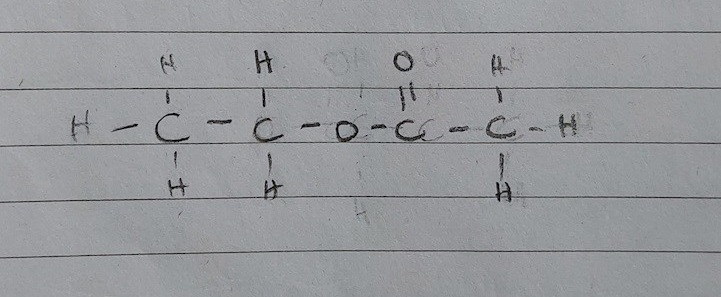 H H O H
H - C - C - O - C - C - H
H H H